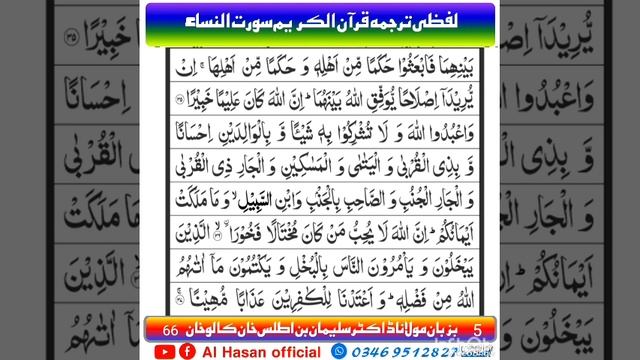 لفظی ترجمہ قرآن الکریم سورت النساء
بَيْنِهِمَا فَابْعَثُوْا حَكَمًا مِّنْ اَهْلِهٖ وَ حَكَمًا مِّنْ اَهْلِهَا ۚ اِنْ
يُّرِيْدَاۤ اِصْلَاحًا يُّوَفِّقِ اللّٰهُ بَيْنَهُمَا ؕ اِنَّ اللّٰهَ كَانَ عَلِيْمًا خَبِيْرًا ۳۵
وَاعْبُدُوا اللّٰهَ وَ لَا تُشْرِكُوْا بِهٖ شَيْـًٔا وَّ بِالْوَالِدَيْنِ اِحْسَانًا
وَّ بِذِى الْقُرْبٰى وَ الْيَتٰمٰى وَ الْمَسٰكِيْنِ وَ الْجَارِ ذِى الْقُرْبٰى
وَ الْجَارِ الْجُنُبِ وَ الصَّاحِبِ بِالْجَنْۢبِ وَابْنِ السَّبِيْلِ ۙ وَ مَا مَلَكَتْ
اَيْمَانُكُمْ ؕ اِنَّ اللّٰهَ لَا يُحِبُّ مَنْ كَانَ مُخْتَالًا فَخُوْرَا ۙ ۳۶ الَّذِيْنَ
يَبْخَلُوْنَ وَ يَاْمُرُوْنَ النَّاسَ بِالْبُخْلِ وَ يَكْتُمُوْنَ مَاۤ اٰتٰىهُمُ
اللّٰهُ مِنْ فَضْلِهٖ ؕ وَ اَعْتَدْنَا لِلْكٰفِرِيْنَ عَذَابًا مُّهِيْنًا ۚ ۳۷
5 بزبان مولانا ڈاکٹر سلیمان بن اطلس خان کالوخان 66
Al Hasan official 03469512827